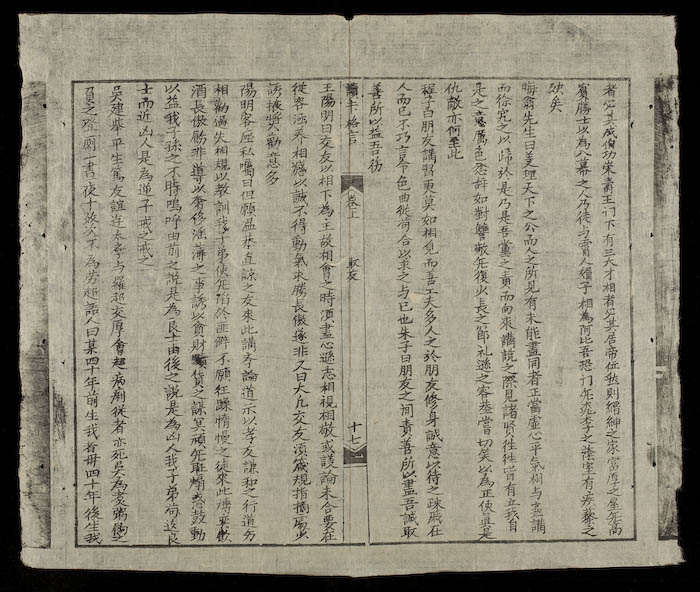 者必其威復功業蕭王门下有三大才相者必其居帝位執則縉紳之家當厚之室无尚
賓勝士以為入幕之人乃徒与賣人婦子相為阿比吾恐门无桃李之蔭室有疾藜之
殃矣
晦翁先生曰義理天下之公而人之所見有未能盡同者正當虛心平氣相与熟講
而徐究之以歸於是乃是吾黨之責而向來講說之際見諸賢往往皆有立我自
是之意厲色忿辞如對讐敵无復少長之節礼遜之容甚當切以為正使真是
仇敵亦何至此
程子曰朋友講習更莫如相見而善工夫多人之於朋友修身誠意以待之疎戚在
人而已不巧言令色曲從苟合以求之与已也朱子曰朋友之间責善所以盡吾誠取
善所以益吾德
格言 卷上 取友 十七
王陽明曰交友以相下為主故相會之時須盡心遜志相視相敬或議論未合要在
從容涵养相感以誠不得動氣求勝長傲遂非又曰大凡交友須箴規指摘處少
誘掖奬勸意多
陽明客座私囑曰但願溫恭直諒之友來此講学論道示以孝友謙和之行道勿
相勸過失相規以教訓我子弟使无陷於匪僻不願狂躁惰慢之徒來此博奕飲
酒長傲飾非導以奢侈淫蕩之事誘以貪財黷貨之謀冥頑无耻煽惑鼓動
以益我子孫之不肖嗚呼由前之說是為良士由後之說是為凶人我子弟苟遠良
士而近凶人是為逆子戒之戒之
吳建舉平生篤友誼連太学与羅超交厚會超病痢從者亦死吳为煮粥傷之
負之登厕一晝夜十数次不為劳超語人曰某四十年前生我者母四十年後生我